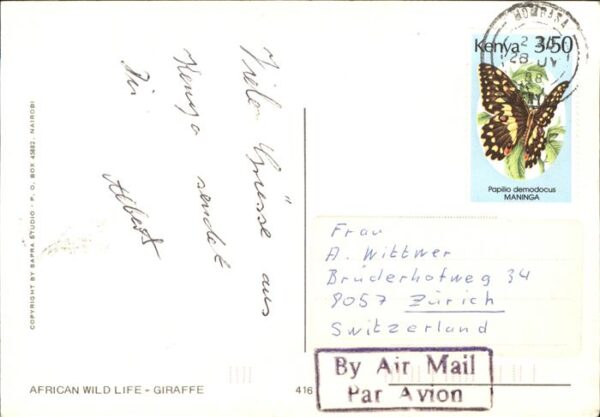 Viele Grüsse aus
Kenya sendet
Dir
Albert
COPYRIGHT BY SAPRA STUDIO - P. O. BOX 45882, NAIROBI
AFRICAN WILD LIFE - GIRAFFE
416
MOMBASA
28
88
Kenya 3/50
Papilio demodocus
MANINGA
Frau
A. Wittwer
Brüderhofweg 34
8057 Zürich
Switzerland
By Air Mail
Par Avion